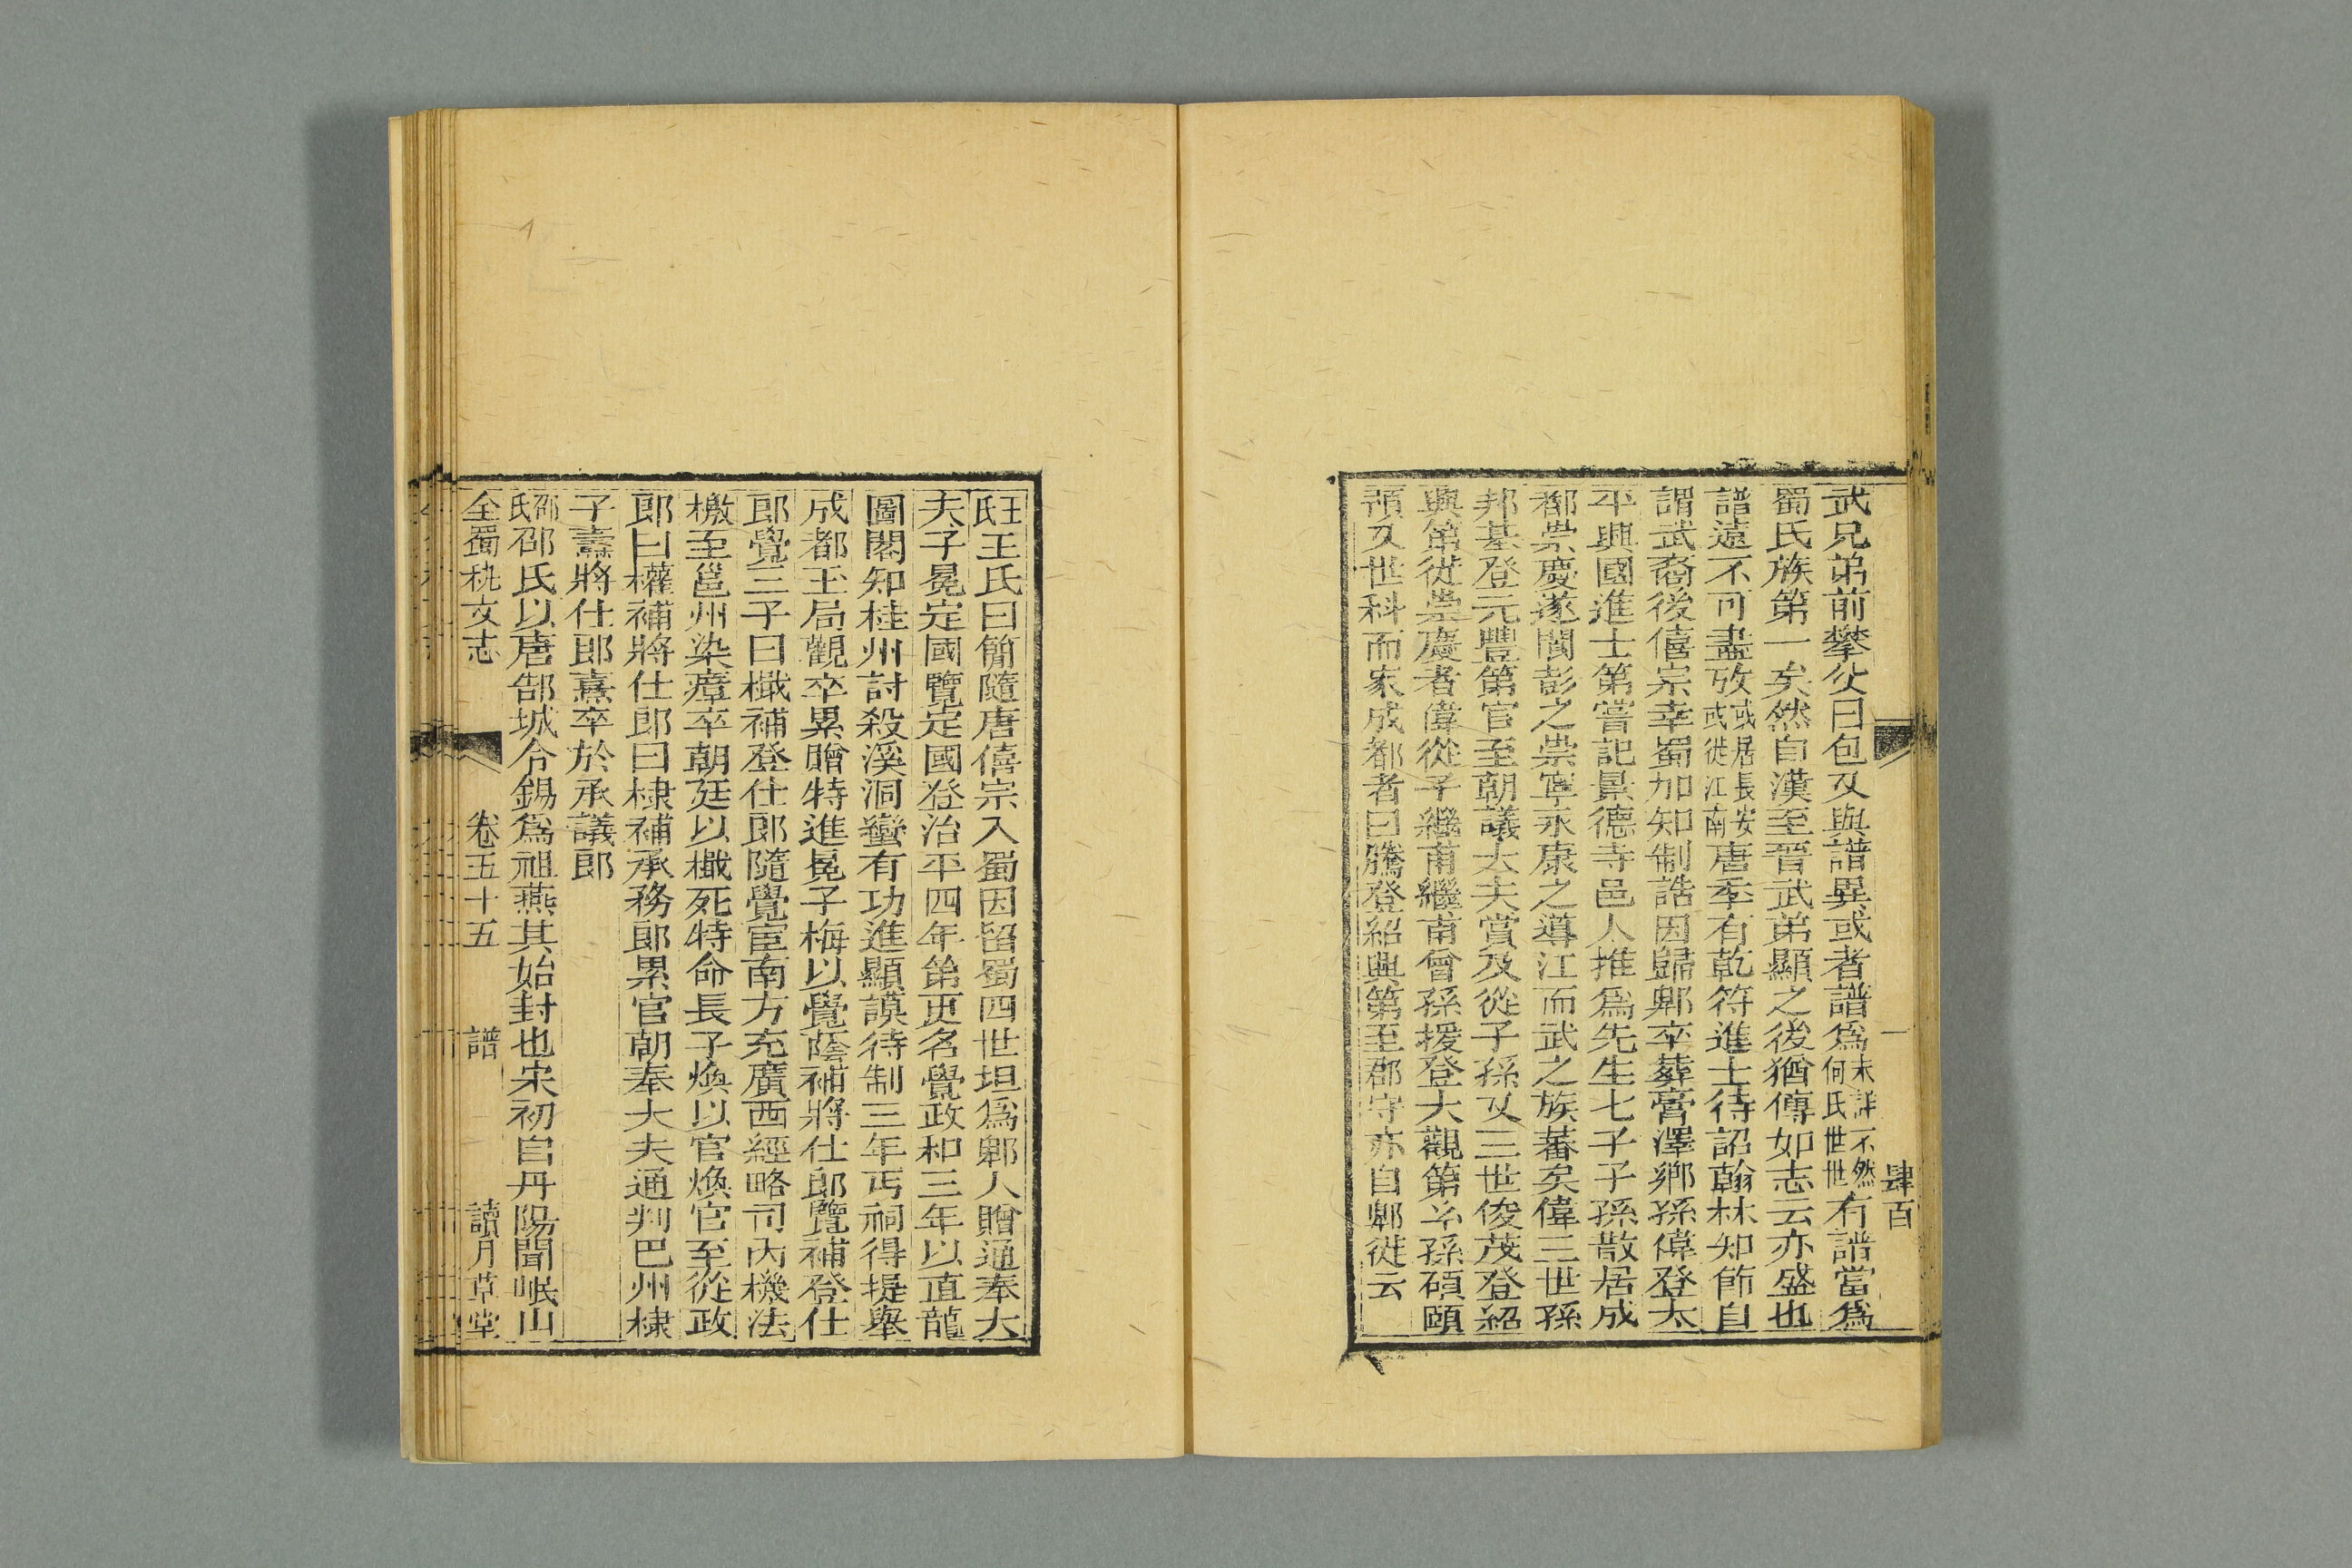 肆百
一
武兄弟前攀次曰包又與譜異或者譜爲未詳不然何氏世世有譜當爲
蜀氏族第一矣然自漢至晉武弟顯之後猶傳如志云亦盛也
譜遠不可盡攷或居長安或徙江南唐季有乾符進士待詔翰林知節自
謂武裔後僖宗幸蜀加知制誥因歸郫卒葬膏澤鄉孫偉登太
平興國進士第嘗記景德寺邑人推爲先生七子子孫散居成
都崇慶遂閬彭之崇寧永康之導江而武之族蕃矣偉三世孫
邦基登元豐第官至朝議大夫賞及從子孫又三世俊茂登紹
興第徙崇慶者偉從子繼甫繼甫曾孫援登大觀第玄孫碩頤
頎又世科而家成都者曰騰登紹興第至郡守亦自郫徙云
王氏王氏曰簡隨唐僖宗入蜀因留蜀四世坦爲郫人贈通奉大
夫子冕定國覽定國登治平四年第更名覺政和三年以直龍
圖閣知桂州討殺溪洞蠻有功進顯謨待制三年丐祠得提舉
成都玉局觀卒累贈特進冕子梅以覺蔭補將仕郎覽補登仕
郎覺三子曰檝補登仕郎隨覺宦南方充廣西經略司內機法
檄至邕州染瘴卒朝廷以檝死特命長子煥以官煥官至從政
郎曰權補將仕郎曰棣補承務郎累官朝奉大夫通判巴州棣
子燾將仕郎熹卒於承議郎
邵氏邵氏以唐郜城令錫爲祖燕其始封也宋初自丹陽聞岷山
全蜀秇文志 卷五十五 譜 讀月草堂